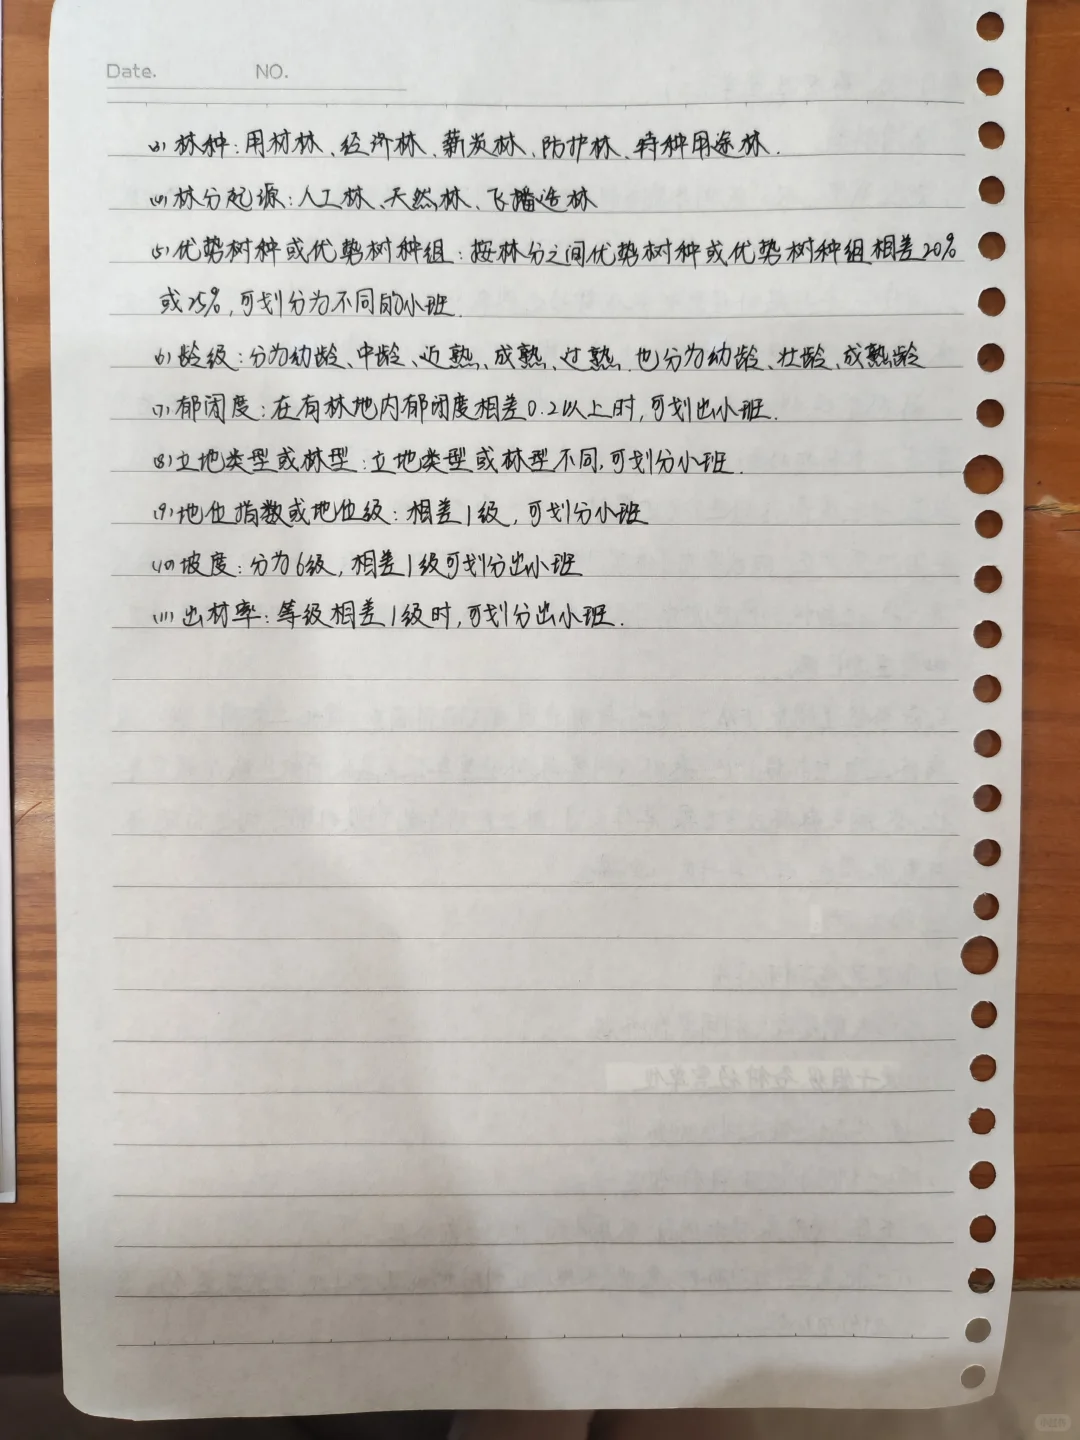 Date. NO.
(3) 林种：用材林、经济林、薪炭林、防护林、特种用途林.
(4) 林分起源：人工林、天然林、飞播造林
(5) 优势树种或优势树种组：按林分之间优势树种或优势树种组相差20%
或25%,可划分为不同的小班.
(6) 龄级：分为幼龄、中龄、近熟、成熟、过熟.也分为幼龄、壮龄、成熟龄
(7) 郁闭度：在有林地内郁闭度相差0.2以上时,可划出小班.
(8) 立地类型或林型：立地类型或林型不同,可划分小班.
(9) 地位指数或地位级：相差1级,可划分小班
(10) 坡度：分为6级,相差1级可划分出小班
(11) 出材率：等级相差1级时,可划分出小班.